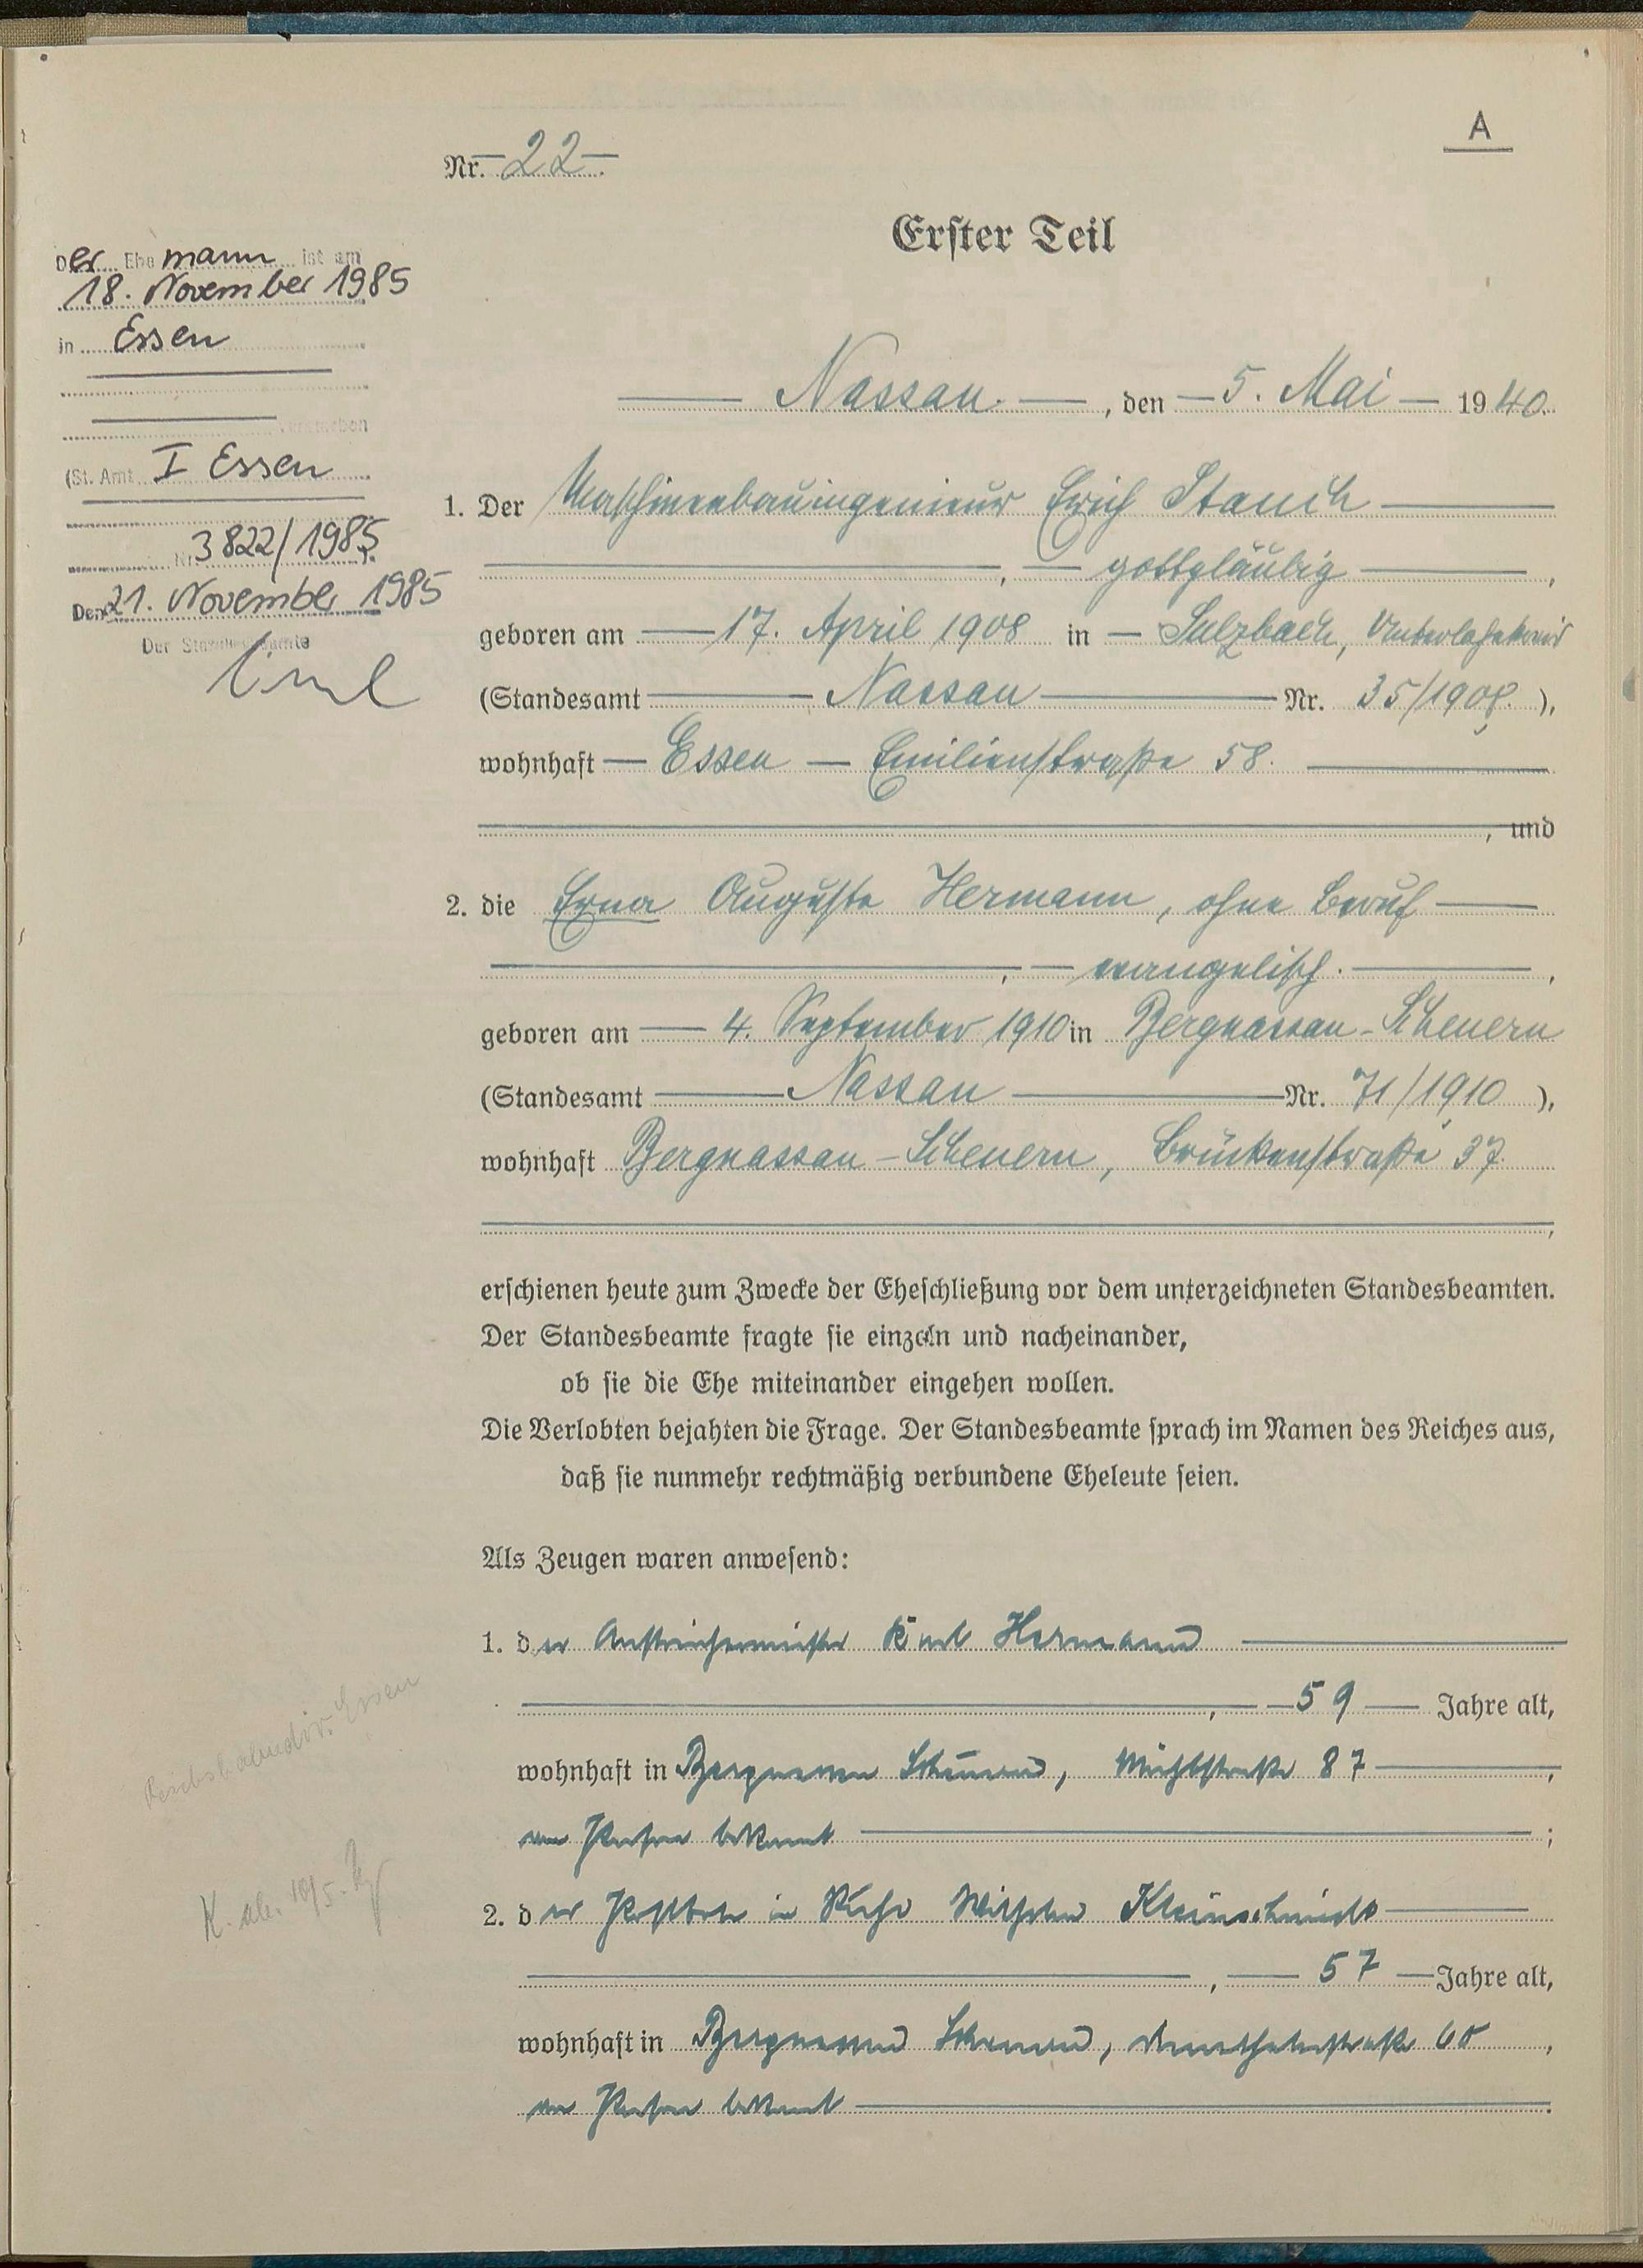 A
Nr. 22.
Erster Teil
Der Ehemann ist am
18. November 1985
in Essen
verstorben
(St. Amt I Essen
Nr. 3822/1985).
Den 21. November 1985
Der Standesbeamte
Nassau, den 5. Mai 1940.
1. Der Maschinenbauingenieur Erich Stauch
, gottgläubig,
geboren am 17. April 1908 in Sulzbach, Unterlahnkreis
(Standesamt Nassau Nr. 35/1908.),
wohnhaft Essen Emilienstraße 58.
, und
2. die Erna Auguste Hermann, ohne Beruf
, evangelisch.,
geboren am 4. September 1910 in Bergnassau-Scheuern
(Standesamt Nassau Nr. 71/1910),
wohnhaft Bergnassau-Scheuern, Brückenstraße 37.
,
erschienen heute zum Zwecke der Eheschließung vor dem unterzeichneten Standesbeamten.
Der Standesbeamte fragte sie einzeln und nacheinander,
ob sie die Ehe miteinander eingehen wollen.
Die Verlobten bejahten die Frage. Der Standesbeamte sprach im Namen des Reiches aus,
daß sie nunmehr rechtmäßig verbundene Eheleute seien.
Als Zeugen waren anwesend:
1. der Anstreichermeister Karl Hermann
, 59 Jahre alt,
wohnhaft in Bergnassau Scheuern, 87,
von Person bekannt;
2. der Wilhelm Kleinschmidt
, 57 Jahre alt,
wohnhaft in Bergnassau Scheuern, 60,
von Person bekannt.
Reichsbahndir. Essen